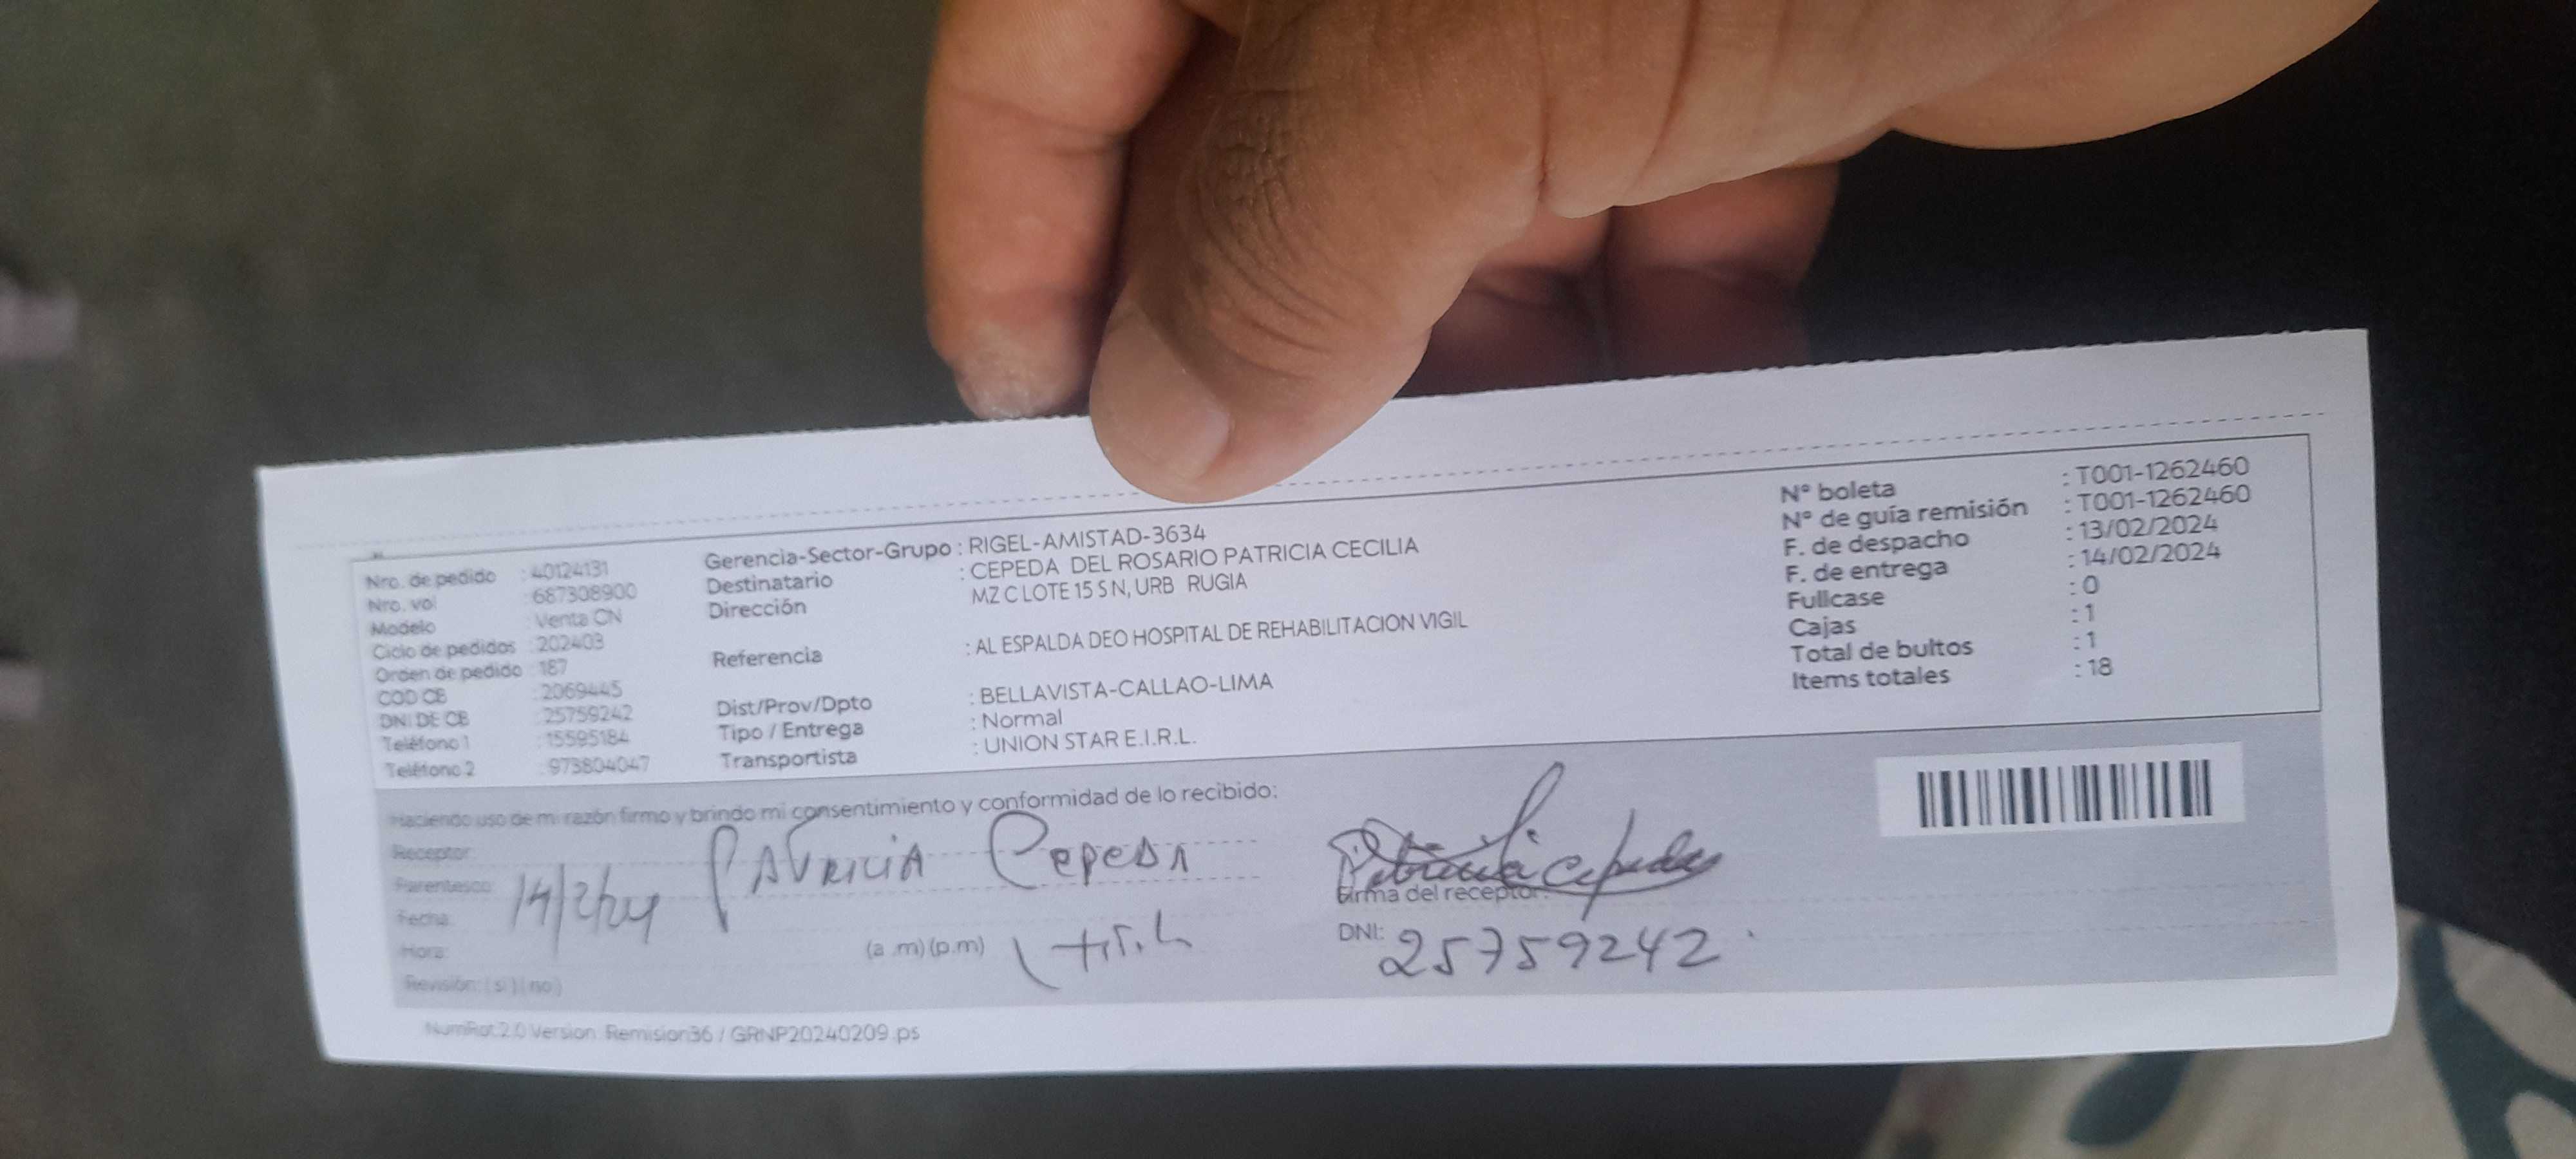 Nro. de pedido : 40124131
Nro. vol : 687308900
Modelo : Venta CN
Ciclo de pedidos : 202403
Orden de pedido : 187
COD CB : 2069445
DNI DE CB : 25759242
Teléfono 1 : 15595184
Teléfono 2 : 973804047
Gerencia-Sector-Grupo : RIGEL-AMISTAD-3634
Destinatario : CEPEDA DEL ROSARIO PATRICIA CECILIA
Dirección MZ C LOTE 15 S N, URB RUGIA
Referencia : AL ESPALDA DEO HOSPITAL DE REHABILITACION VIGIL
Dist/Prov/Dpto : BELLAVISTA-CALLAO-LIMA
Tipo / Entrega : Normal
Transportista : UNION STAR E.I.R.L.
N° boleta : T001-1262460
N° de guía remisión : T001-1262460
F. de despacho : 13/02/2024
F. de entrega : 14/02/2024
Fullcase : 0
Cajas : 1
Total de bultos : 1
Items totales : 18
Haciendo uso de mi razón firmo y brindo mi consentimiento y conformidad de lo recibido:
Receptor: PATRICIA CEPEDA
Parentesco:
Fecha: 14/2/24
Hora: (a .m) (p.m)
Revisión: ( si ) ( no )
Patricia Cepeda
Firma del receptor:
DNI: 25759242
NumRot.2.0 Version: Remision36 / GRNP20240209.ps